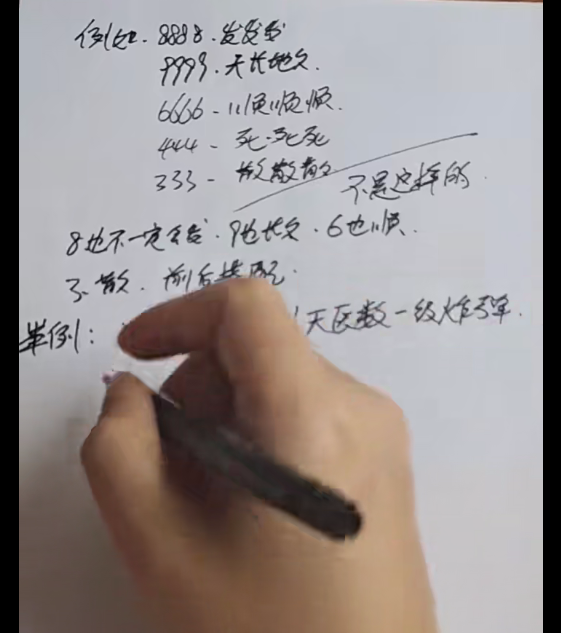 例如. 8888. 发发发
9999. 天长地久.
6666 - 顺顺顺.
444 - 死死死
333 - 散散散
不是这样的.
8也不一定会发. 9也长久. 6也顺.
3散. 前后搭配.
举例: 天医数一级炸弹.